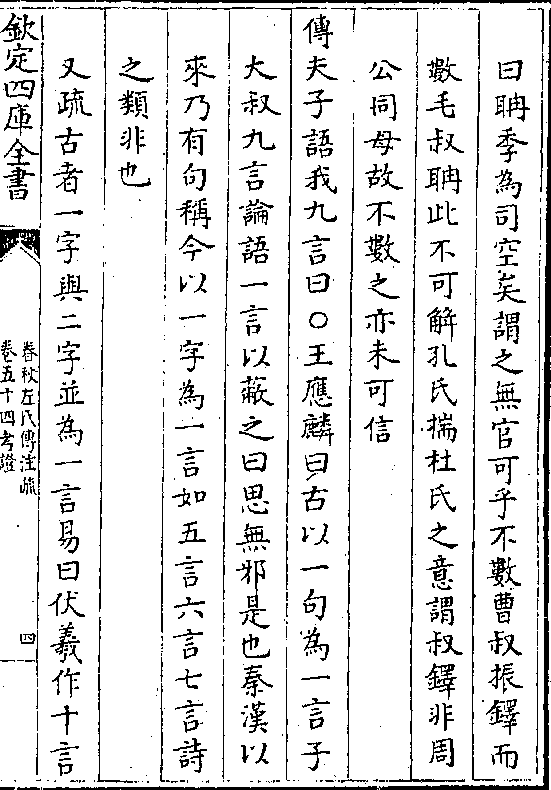 曰聃季為司空矣謂之無官可乎不數曹叔振鐸而
數毛叔聃此不可解孔氏揣杜氏之意謂叔鐸非周
公同母故不數之亦未可信
傳夫子語我九言曰○王應麟曰古以一句為一言子
大叔九言論語一言以蔽之曰思無邪是也秦漢以
來乃有句稱今以一字為一言如五言六言七言詩
之類非也
又疏古者一字與二字並為一言易曰伏羲作十言
欽定四庫全書
春秋左氏傳注疏
卷五十四考證
四